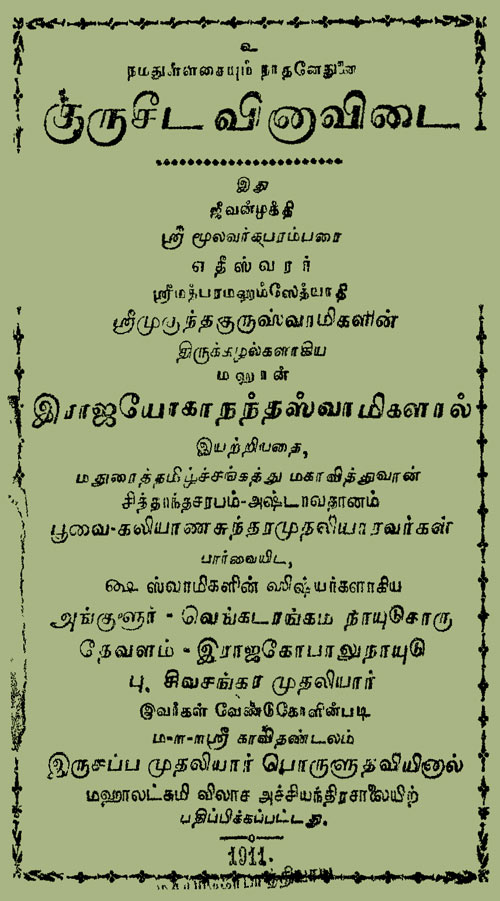 உ
நமதுள்ளசையும் நாதனேதுணை
குருசீட வினாவிடை
இது
ஜீவன்முக்தி
ஸ்ரீ மூலவர்க்கபரம்பரை
எதீஸ்வரர்
ஸ்ரீமத்பரமஹம்ஸேத்யாதி
ஸ்ரீமுகுந்தகுருஸ்வாமிகளின்
திருக்கழல்களாகிய
மஹான்
இராஜயோகாநந்தஸ்வாமிகளால்
இயற்றியதை,
மதுரைத்தமிழ்ச்சங்கத்து மகாவித்துவான்
சித்தாந்தசரபம்-அஷ்டாவதானம்
பூவை-கலியாணசுந்தரமுதலியாரவர்கள்
பார்வையிட,
ஷை ஸ்வாமிகளின் ஸிஷ்யர்களாகிய
அங்குளூர் - வெங்கடரங்கம நாயுடுகாரு
தேவளம் - இராஜகோபாலுநாயுடு
பு. சிவசங்கர முதலியார்
இவர்கள் வேண்டுகோளின்படி
ம-ா-ா-ஸ்ரீ காவிதண்டலம்
இருசப்ப முதலியார் பொருளுதவியினால்
மஹாலட்சுமி விலாச அச்சியந்திரசாலையிற்
பதிப்பிக்கப்பட்டது.
1911.